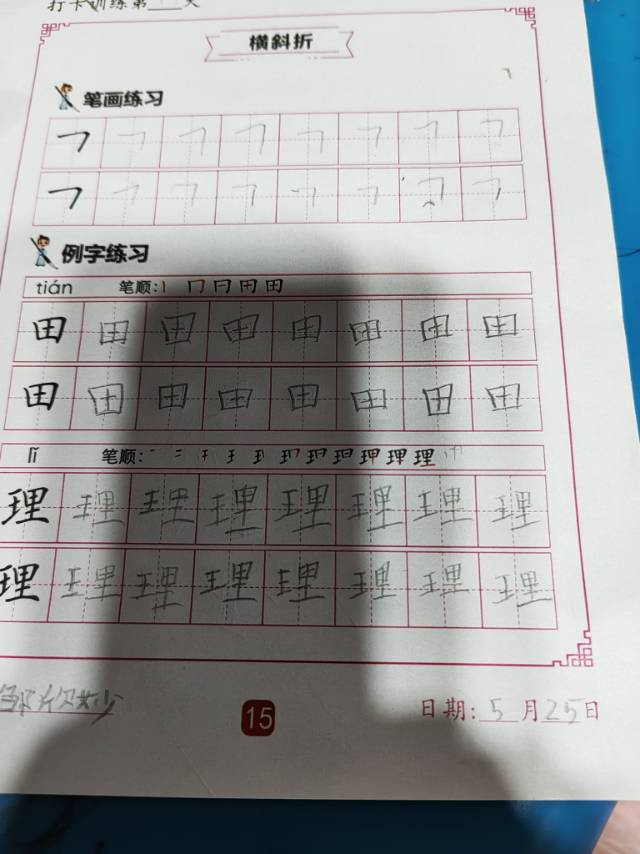 打卡训练第 天
横斜折
笔画练习
㇇ ㇇ ㇇ ㇇ ㇇ ㇇ ㇇ ㇇
㇇ ㇇ ㇇ ㇇ ㇇ ㇇ ㇇ ㇇
例字练习
tián 笔顺: 丨 冂 冃 田 田
田 田 田 田 田 田 田 田
田 田 田 田 田 田 田 田
lǐ 笔顺:
理 理 理 理 理 理 理 理
理 理 理 理 理 理 理 理
15
日期: 5 月 25 日